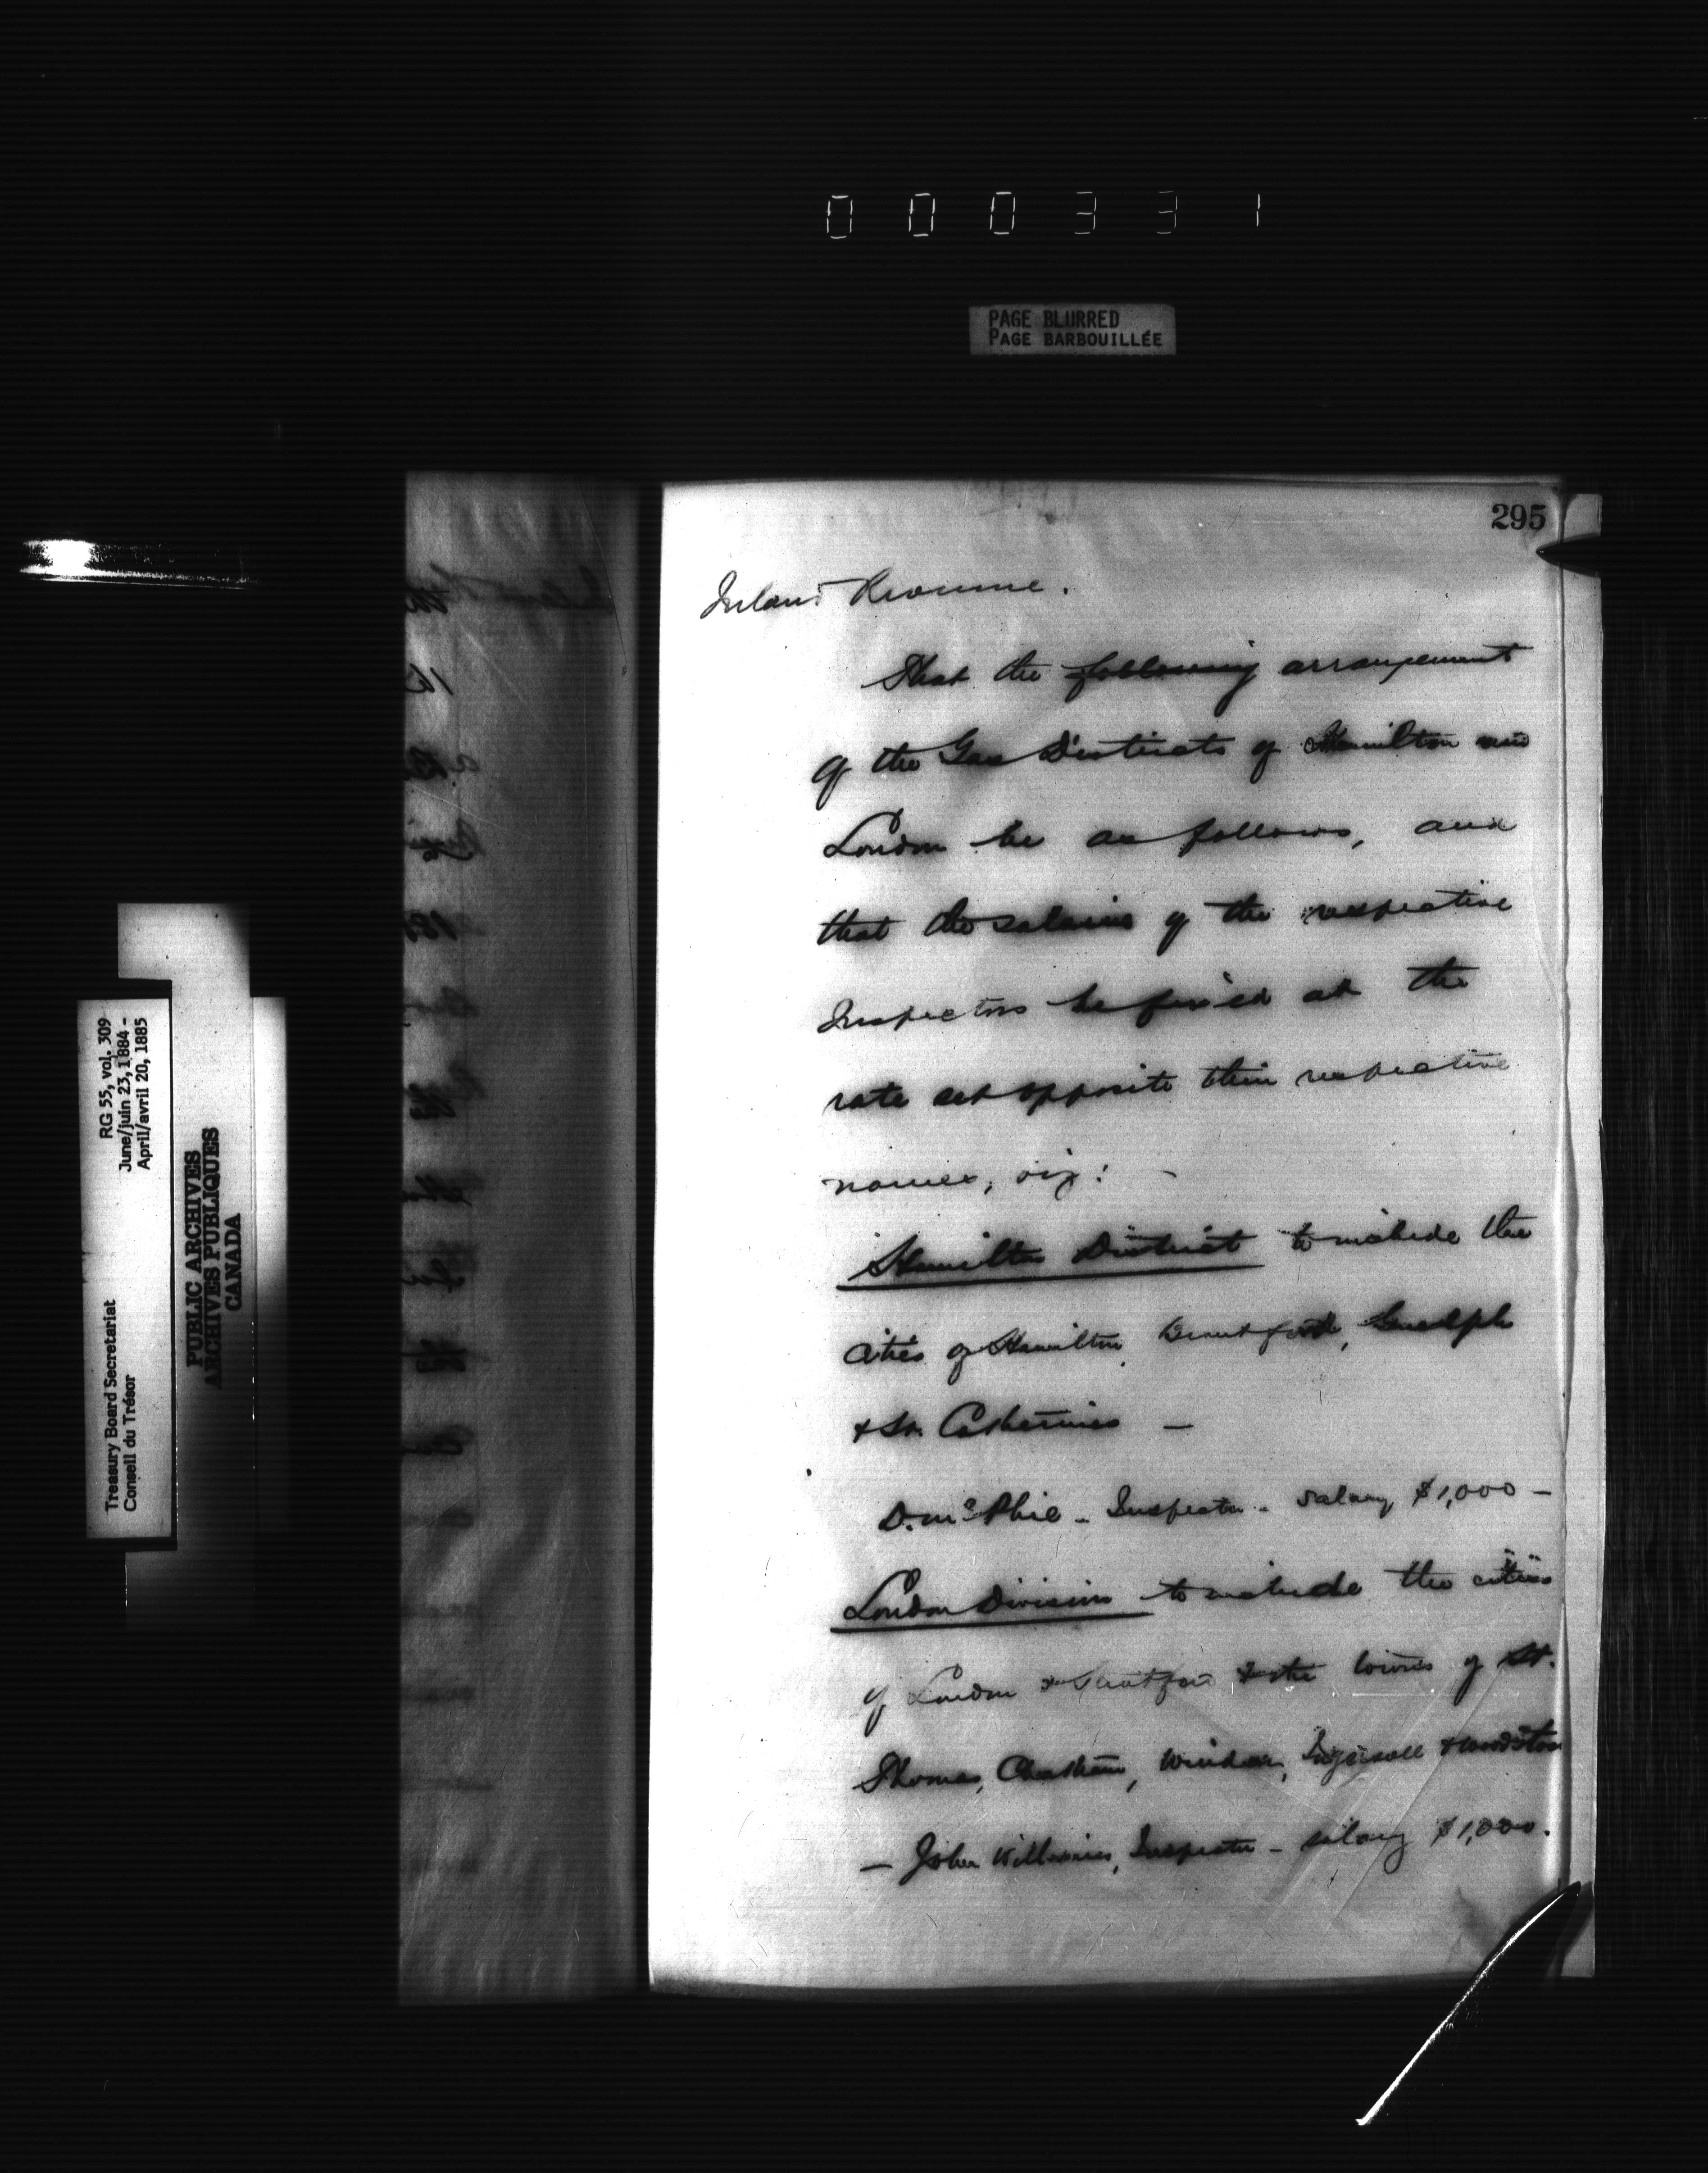 000331
PAGE BLURRED
PAGE BARBOUILLÉE
295
Inland Revenue.
That the following arrangement
of the Gas Districts of Hamilton and
London be as follows, and
that the salaries of the respective
Inspectors be fixed at the
rate set opposite their respective
names, viz: -
Hamilton District to include the
Cities of Hamilton, Brantford, Guelph
& St. Catherines —
D. McPhie - Inspector - salary $1,000 -
London Division to include the cities
of London & Stratford & the towns of St.
Thomas, Chatham, Windsor, Ingersoll & Woodstock
— John Williams, Inspector - salary $1,000.
RG 55, vol. 309
June/juin 23, 1884 -
April/avril 20, 1885
Treasury Board Secretariat
Conseil du Trésor
PUBLIC ARCHIVES
ARCHIVES PUBLIQUES
CANADA